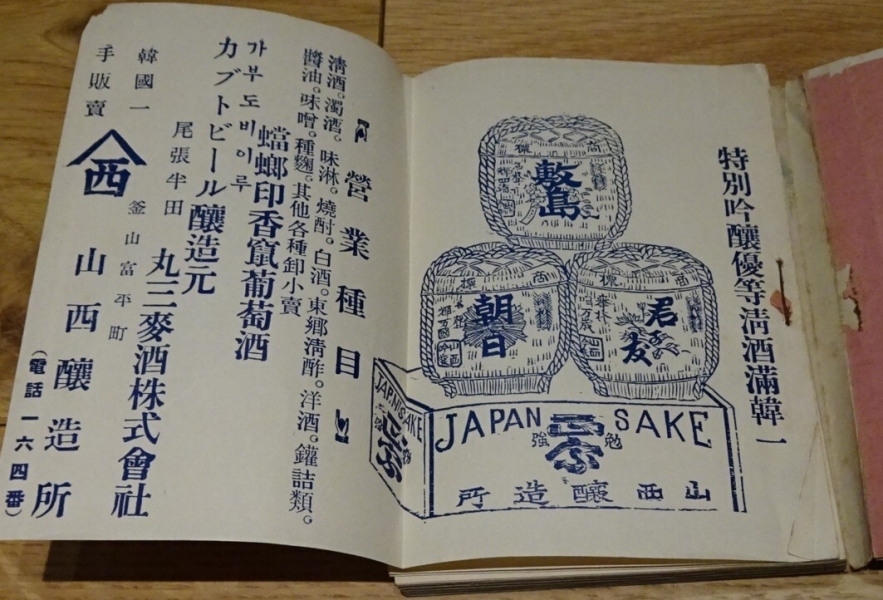 特別吟醸優等清酒滿韓一
商標
敷島
商標
君友
商標
朝日
JAPAN SAKE
勉強
正宗
山西釀造所
JAPN SAKE
正宗
營業種目
淸酒。濁酒。味淋。燒酎。白酒。東郷淸酢。洋酒。鑵詰類。
醬油。味噌。種麴。其他各種卸小賣
蟷螂印香竄葡萄酒
가부도비이루
カブトビール釀造元
尾張半田 丸三麥酒株式會社
韓國一手販賣
西
釜山富平町
山西釀造所
(電話一六四番)